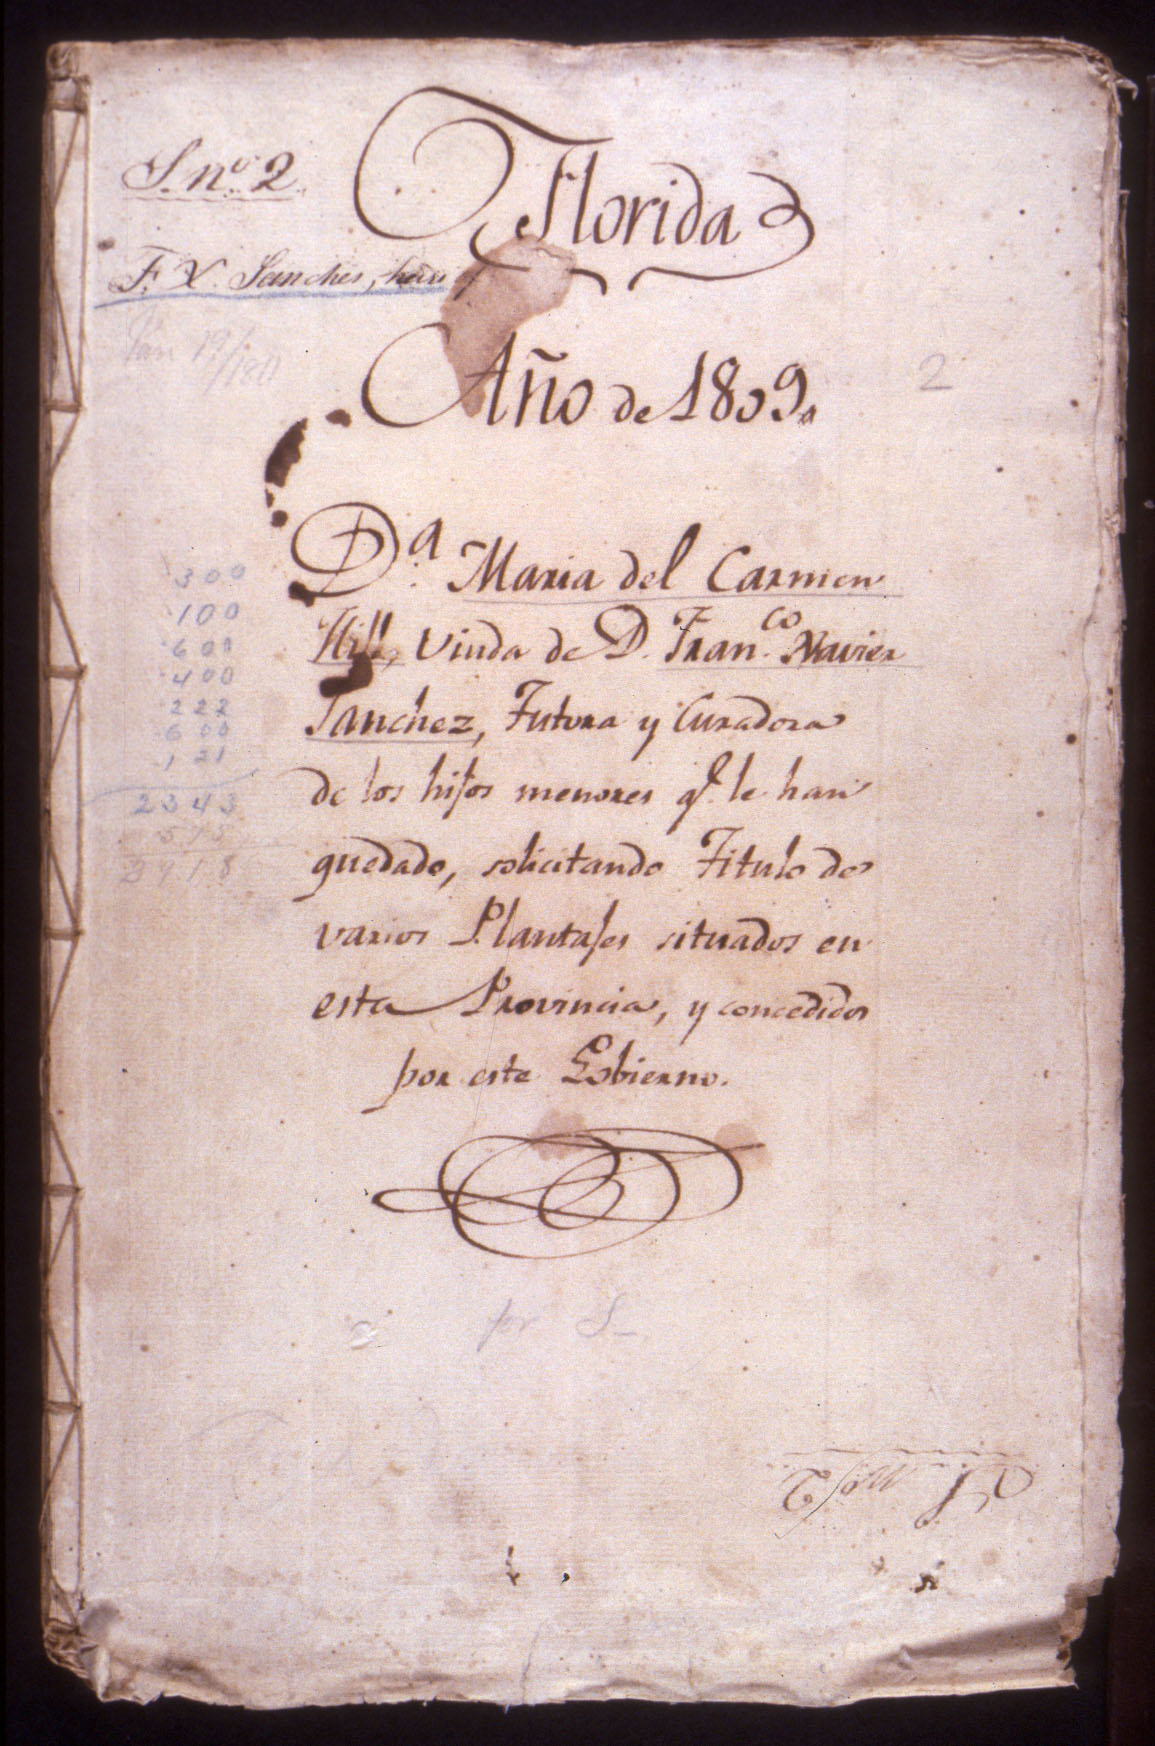 S. nº 2
Florida
F. X. Sanches, heirs of
Año de 1809.
2
Dª Maria del Carmen
Hill, Viuda de D. Franco. Xavier
Sanchez, Tutora y Curadora
de los hijos menores q.e le han
quedado, solicitando Titulo de
varios Plantajes situados en
esta Provincia, y concedidos
por este Gobierno.
300
100
600
400
222
600
121
2343
575
2918
for S